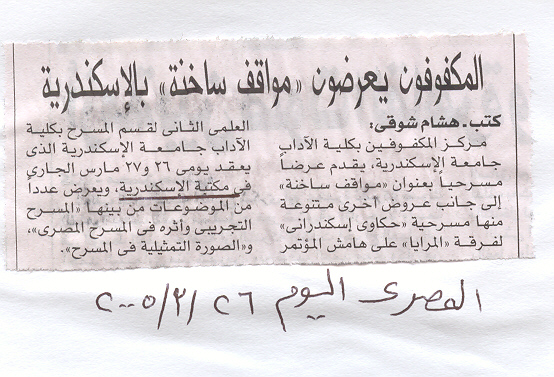 المكفوفون يعرضون «مواقف ساخنة» بالإسكندرية
كتب ـ هشام شوقى:
مركز المكفوفين بكلية الآداب
جامعة الإسكندرية، يقدم عرضاً
مسرحياً بعنوان «مواقف ساخنة»
إلى جانب عروض أخرى متنوعة
منها مسرحية «حكاوى إسكندرانى»
لفرقة «المرايا» على هامش المؤتمر
العلمى الثانى لقسم المسرح بكلية
الآداب جامعة الإسكندرية الذى
يعقد يومى ٢٦ و٢٧ مارس الجارى
فى مكتبة الإسكندرية، ويعرض عددا
من الموضوعات من بينها «المسرح
التجريبى وأثره فى المسرح المصرى»،
و«الصورة التمثيلية فى المسرح».
المصرى اليوم ٢٦/٣/٢٠٠٥